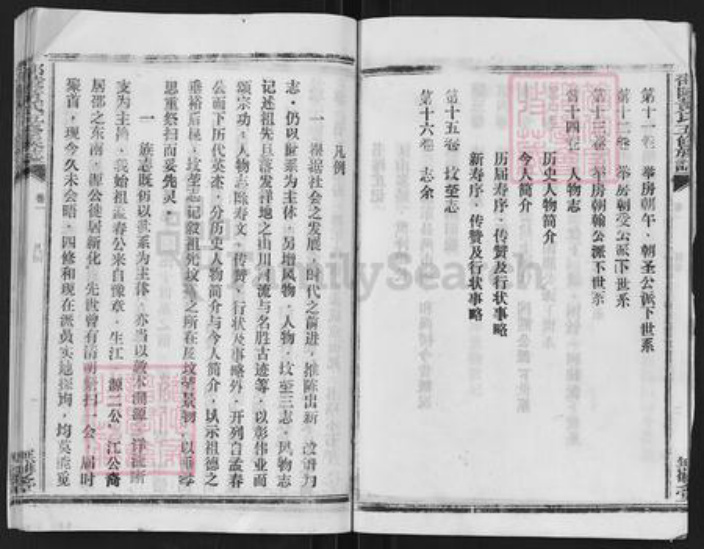 第十一卷 举房朝午·朝圣公派下世系
第十二卷 举房朝受公派下世系
第十三卷 举房朝翰公派下世系
第十四卷 人物志
历史人物简介
今人简介
历届寿序·传赞及行状事略
新寿序·传赞及行状事略
第十五卷 坟茔志
第十六卷 志余
凡例
一 根据社会之发展·时代之前进·推陈出新 改谱为
志·仍以世系为主体·另增风物·人物·坟茔三志·风物志
记述祖先旦落发祥地之山川河流与名胜古迹等·以彰伟业而
颂宗功·人物志除寿文·传赞·行状及事略外·开列自孟春
公而下历代英杰·分历史人物简介与今人简介·以示祖德之
垂裕后昆·坟茔志记叙祖先坟墓之所在及坟茔景物·以
思重祭扫而妥先灵·
一 族志既仍以世系为主体·亦当以敦本溯源
支为主旨·我始祖孟春公来自豫章·生江·源二公·江公裔
居邵之东南·源公徙居新化·先世曾有清明祭扫·会 届时
聚首·现今久未会晤·四修和现在派员实地探询·均莫能觅
FamilySearch